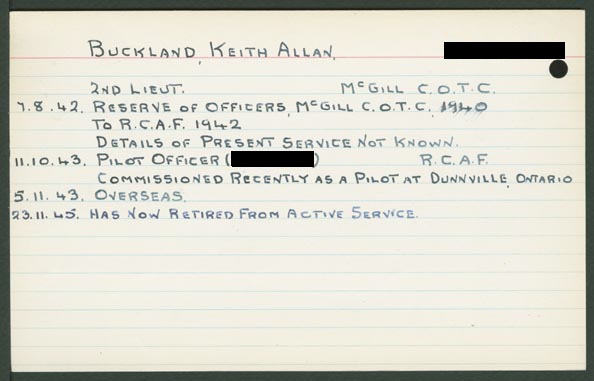 Buckland, Keith Allan.
2nd Lieut. McGill C.O.T.C.
7.8.42. Reserve of Officers, McGill C.O.T.C. 1940
To R.C.A.F. 1942
Details of Present Service Not Known.
11.10.43. Pilot Officer ( ) R.C.A.F.
Commissioned Recently as a Pilot at Dunnville, Ontario
5.11.43. Overseas.
23.11.45. Has Now Retired From Active Service.